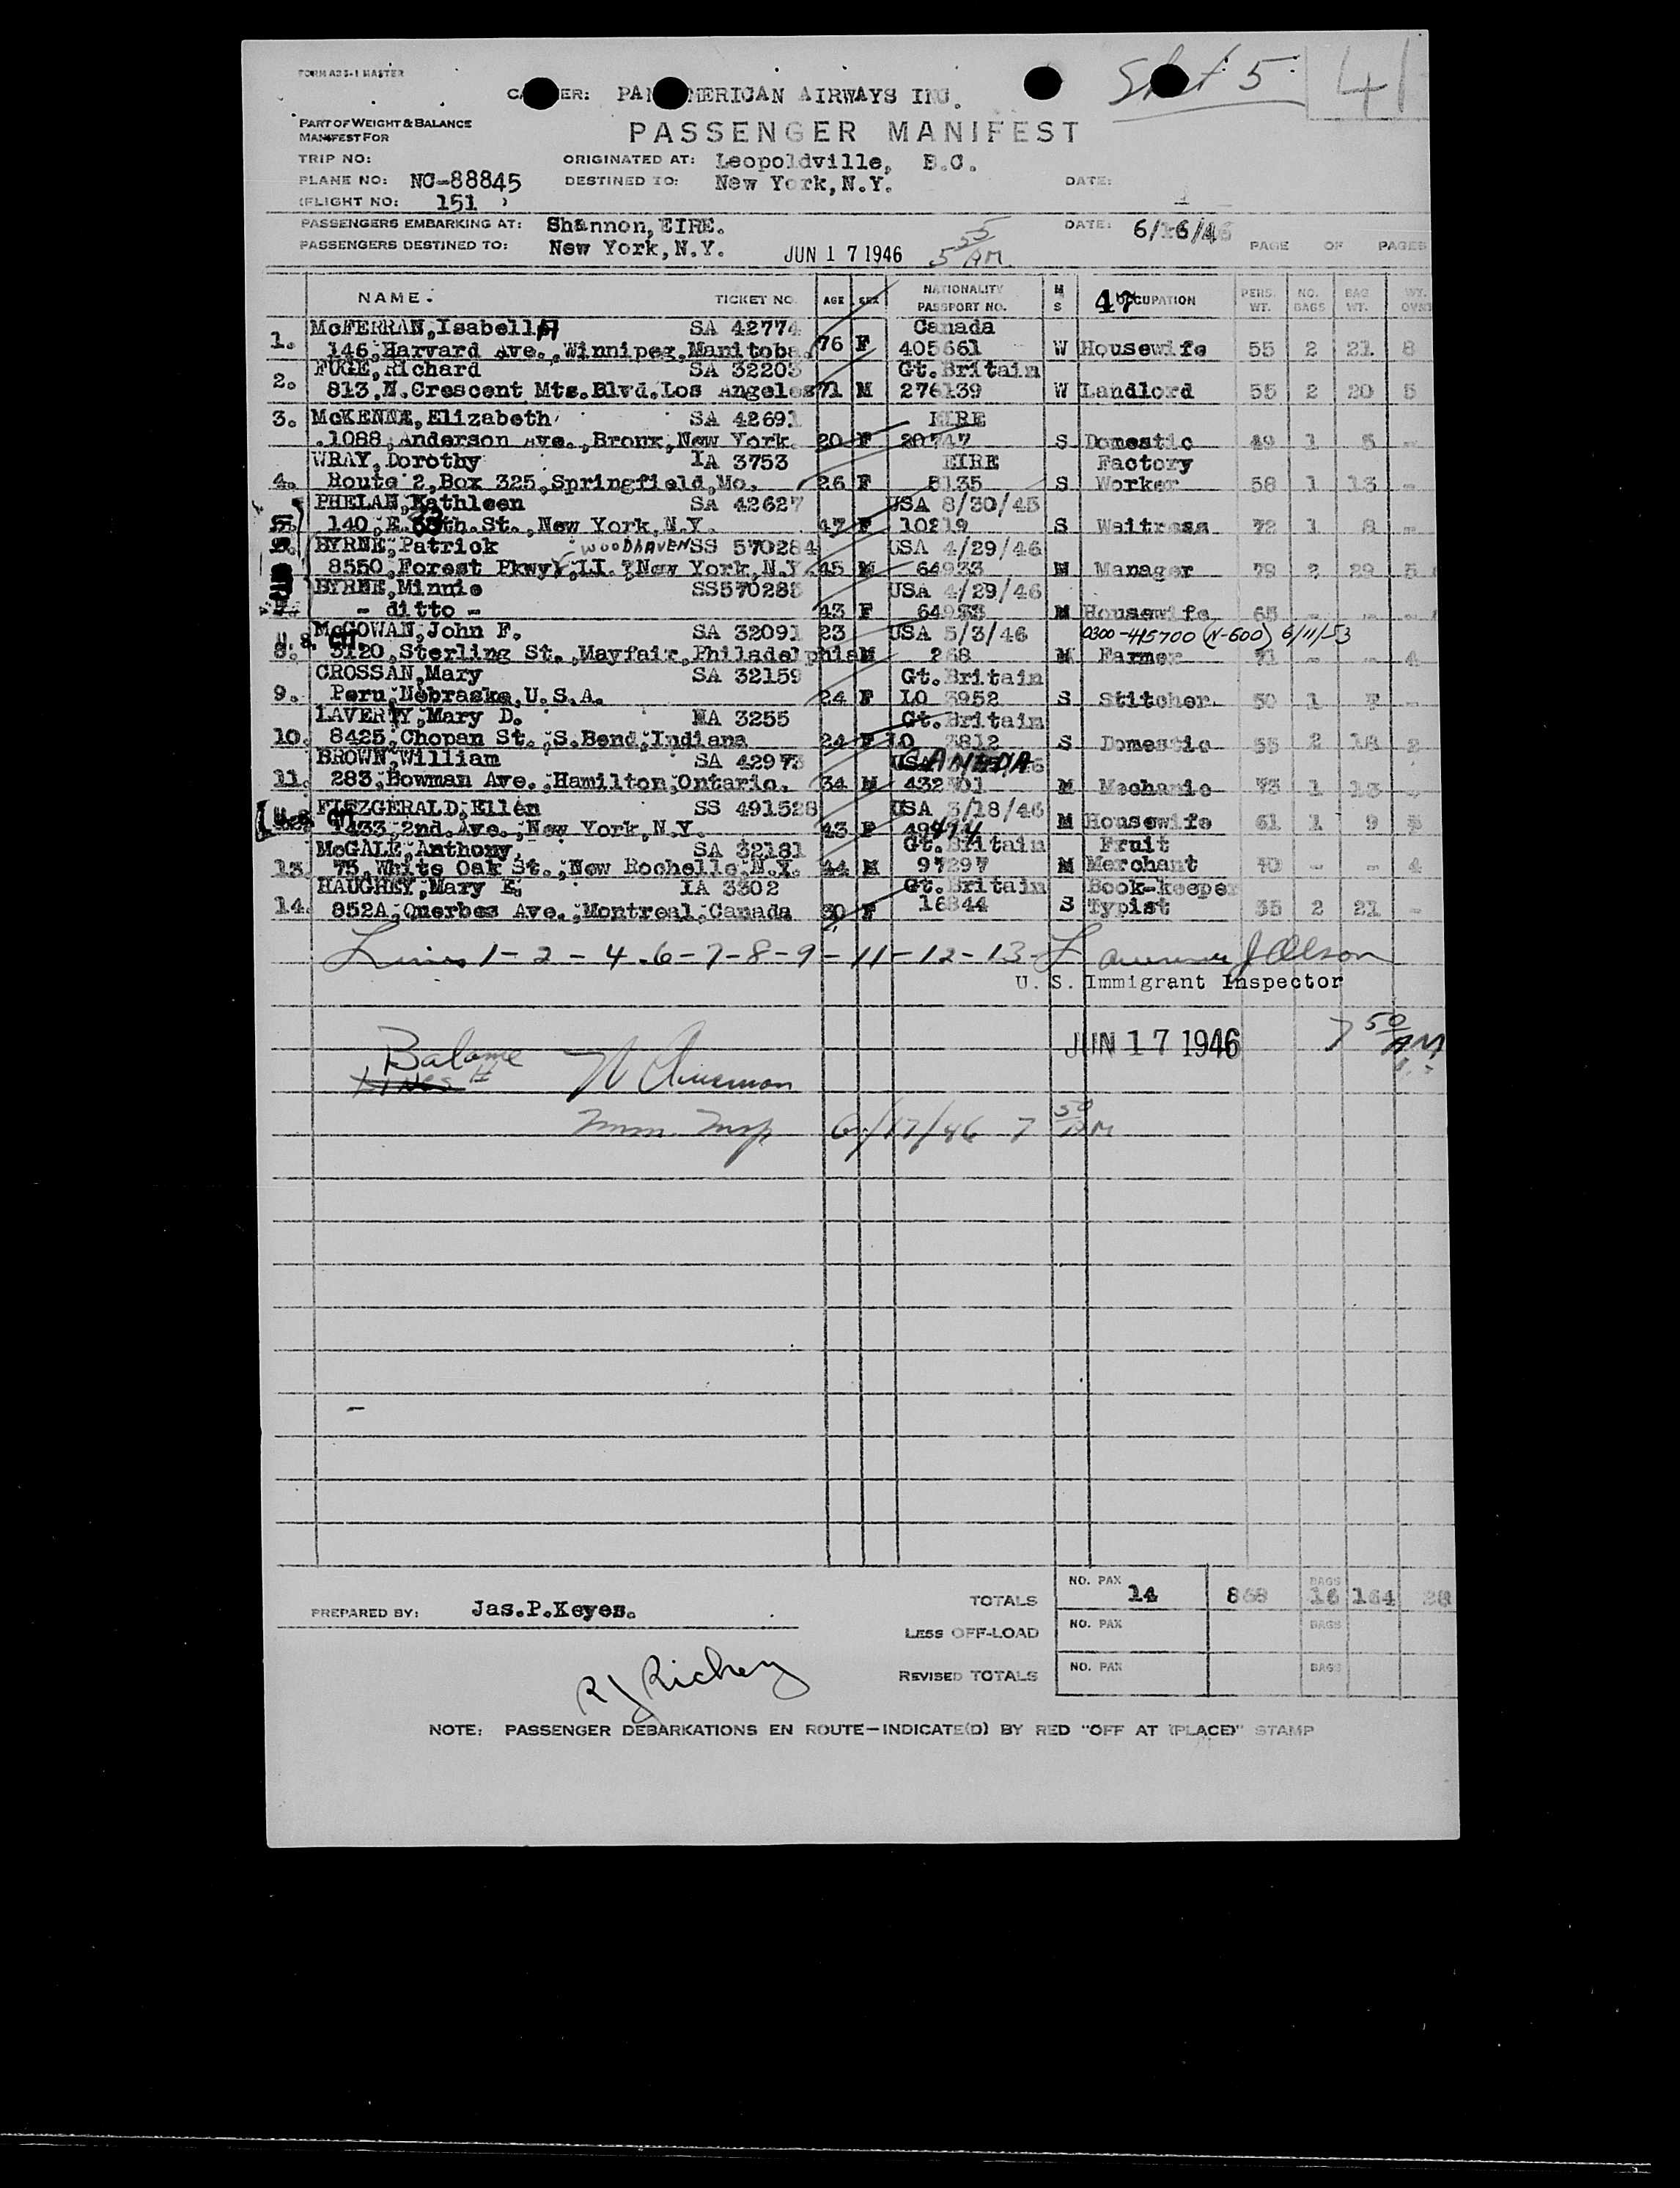 FORM A33-1 MASTER
Sht 5 4
C ER: PAN AMERICAN AIRWAYS INC.
PART OF WEIGHT & BALANCE
MANIFEST FOR
PASSENGER MANIFEST
TRIP NO: ORIGINATED AT: Leopoldville, B.C.
PLANE NO: NC-88845 DESTINED TO: New York, N.Y. DATE:
(FLIGHT NO: 151 )
PASSENGERS EMBARKING AT: Shannon, EIRE. DATE: 6/16/46
PASSENGERS DESTINED TO: New York, N.Y. JUN 17 1946 5 55 AM PAGE OF PAGES
NAME. TICKET NO. AGE SEX NATIONALITY PASSPORT NO. M S 47 OCCUPATION PERS. WT. NO. BAGS BAG WT. WT.
McFERRAN, Isabella SA 42774 Canada
1. 146, Harvard Ave., Winnipeg, Manitoba. 76 F 405661 W Housewife 55 2 21 8
FUGE, Richard SA 32203 Gt. Britain
2. 813, N. Crescent Mts. Blvd. Los Angeles 71 M 276139 W Landlord 55 2 20 5
3. McKENNA, Elizabeth SA 42691 EIRE
1088, Anderson Ave., Bronx, New York. 20 F 20747 S Domestic 49 1 5 -
WRAY, Dorothy IA 3753 EIRE Factory
4. Route 2, Box 325, Springfield, Mo. 26 F 8135 S Worker 58 1 13 -
PHELAN, Kathleen SA 42627 USA 8/30/45
5. 140, E. th. St., New York, N.Y. 47 F 10219 S Waitress 72 1 8 -
BYRNE, Patrick WOODHAVEN SS 570284 USA 4/29/46
8550, Forest Pkwy, LI., New York, N.Y. 45 M 64933 M Manager 79 2 29 5
BYRNE, Minnie SS570285 USA 4/29/46
7. - ditto - 43 F 64933 M Housewife 65 - - -
McGOWAN, John F. SA 32091 23 USA 5/3/46 0300-415700 (N-600) 6/11/53
U.S. CIT
8. 3120, Sterling St., Mayfair, Philadelphia M 268 M Farmer 71 - - 4
CROSSAN, Mary SA 32159 Gt. Britain
9. Peru, Nebraska, U.S.A. 24 F LO 3952 S Stitcher 50 1 7 -
LAVERTY, Mary D. NA 3255 Gt. Britain
10. 8425, Chopan St., S. Bend, Indiana 24 F LO 3812 S Domestic 55 2 18 2
BROWN, William SA 42973 CANADA
11. 283, Bowman Ave., Hamilton, Ontario. 34 M 432301 M Mechanic 73 1 13
FITZGERALD, Ellen SS 491528 USA 3/18/46
U.S. CIT 1433, 2nd. Ave., New York, N.Y. 43 F 49474 M Housewife 61 1 9 5
McGALE, Anthony. SA 32181 Gt. Britain Fruit
13. 75, White Oak St., New Rochelle, N.Y. 44 M 97297 M Merchant 70 - - 4
HAUGHEY, Mary E. IA 3302 Gt. Britain Book-keeper
14. 852A, Querbes Ave., Montreal, Canada 30 F 16844 S Typist 55 2 21 -
Lines 1-2-4-6-7-8-9-11-12-13- Lawrence J Olson
U. S. Immigrant Inspector
JUN 17 1946 7 50 AM
Balance
Lines
Imm. Insp 6/17/46 7 50 AM
TOTALS NO. PAX 14 868 BAGS 16 164 28
PREPARED BY: Jas.P.Keyes.
LESS OFF-LOAD NO. PAX BAGS
REVISED TOTALS NO. PAX BAGS
R J Richey
NOTE: PASSENGER DEBARKATIONS EN ROUTE—INDICATE(D) BY RED "OFF AT (PLACE)" STAMP